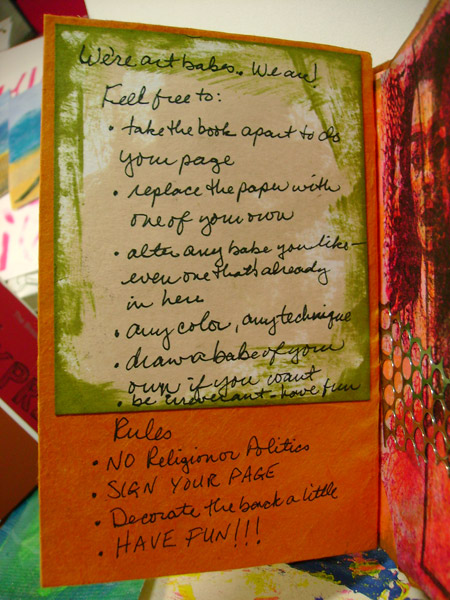 We're art babes. We are!
Feel free to:
• take the book apart to do
your page
• replace the paper with
one of your own
• alter any babe you like -
even one that's already
in here
• any color, any technique
• draw a babe of your
own if you want
• be irreverant - have fun
Rules
• NO Religion or Politics
• SIGN YOUR PAGE
• Decorate the back a little
• HAVE FUN!!!